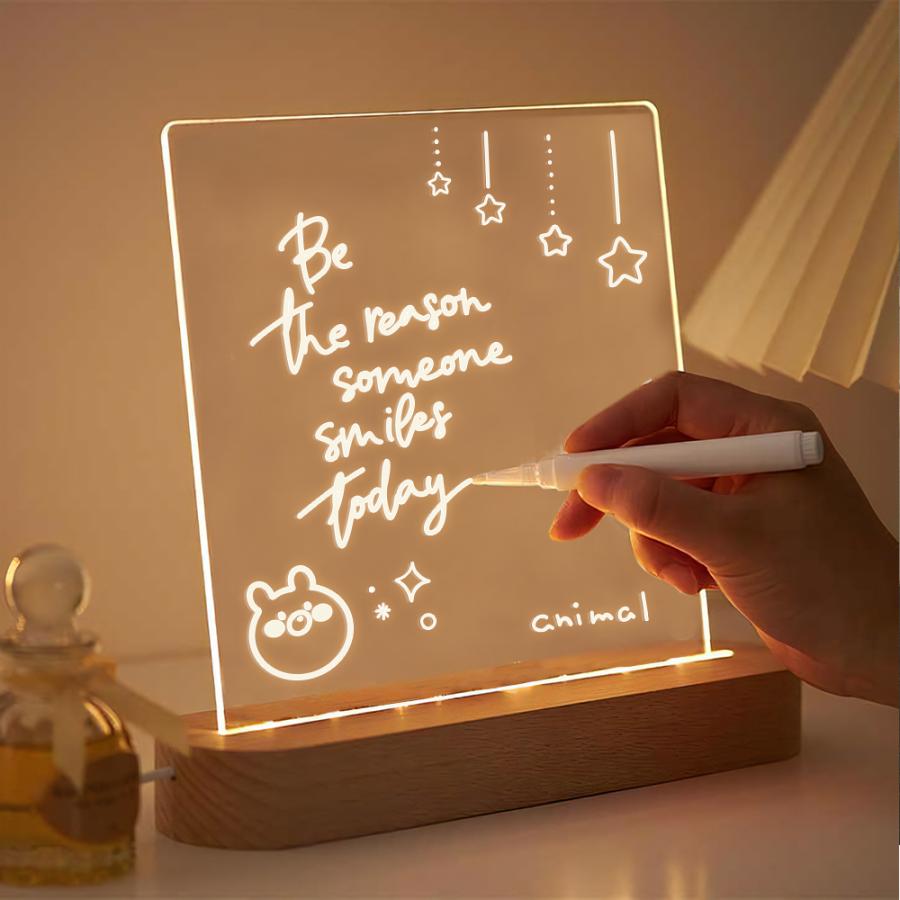 Be
the reason
someone
smiles
today
animal